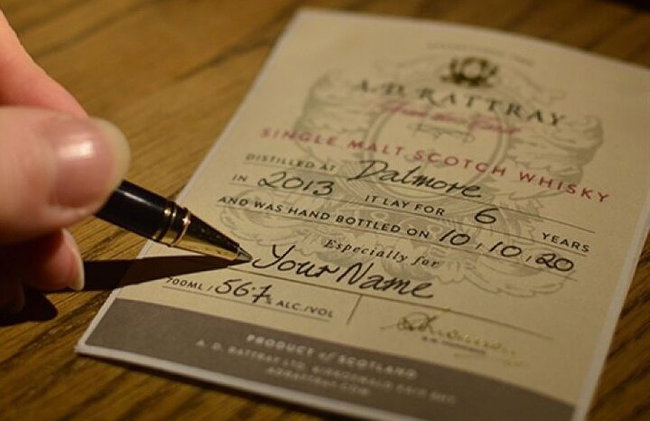 A.D. RATTRAY
SINGLE MALT SCOTCH WHISKY
DISTILLED AT Dalmore
IN 2013 IT LAY FOR 6 YEARS
AND WAS HAND BOTTLED ON 10/10/20
Especially for
Your Name
700ML / 56.7% ALC./VOL
PRODUCT of SCOTLAND
A. D. RATTRAY LTD.